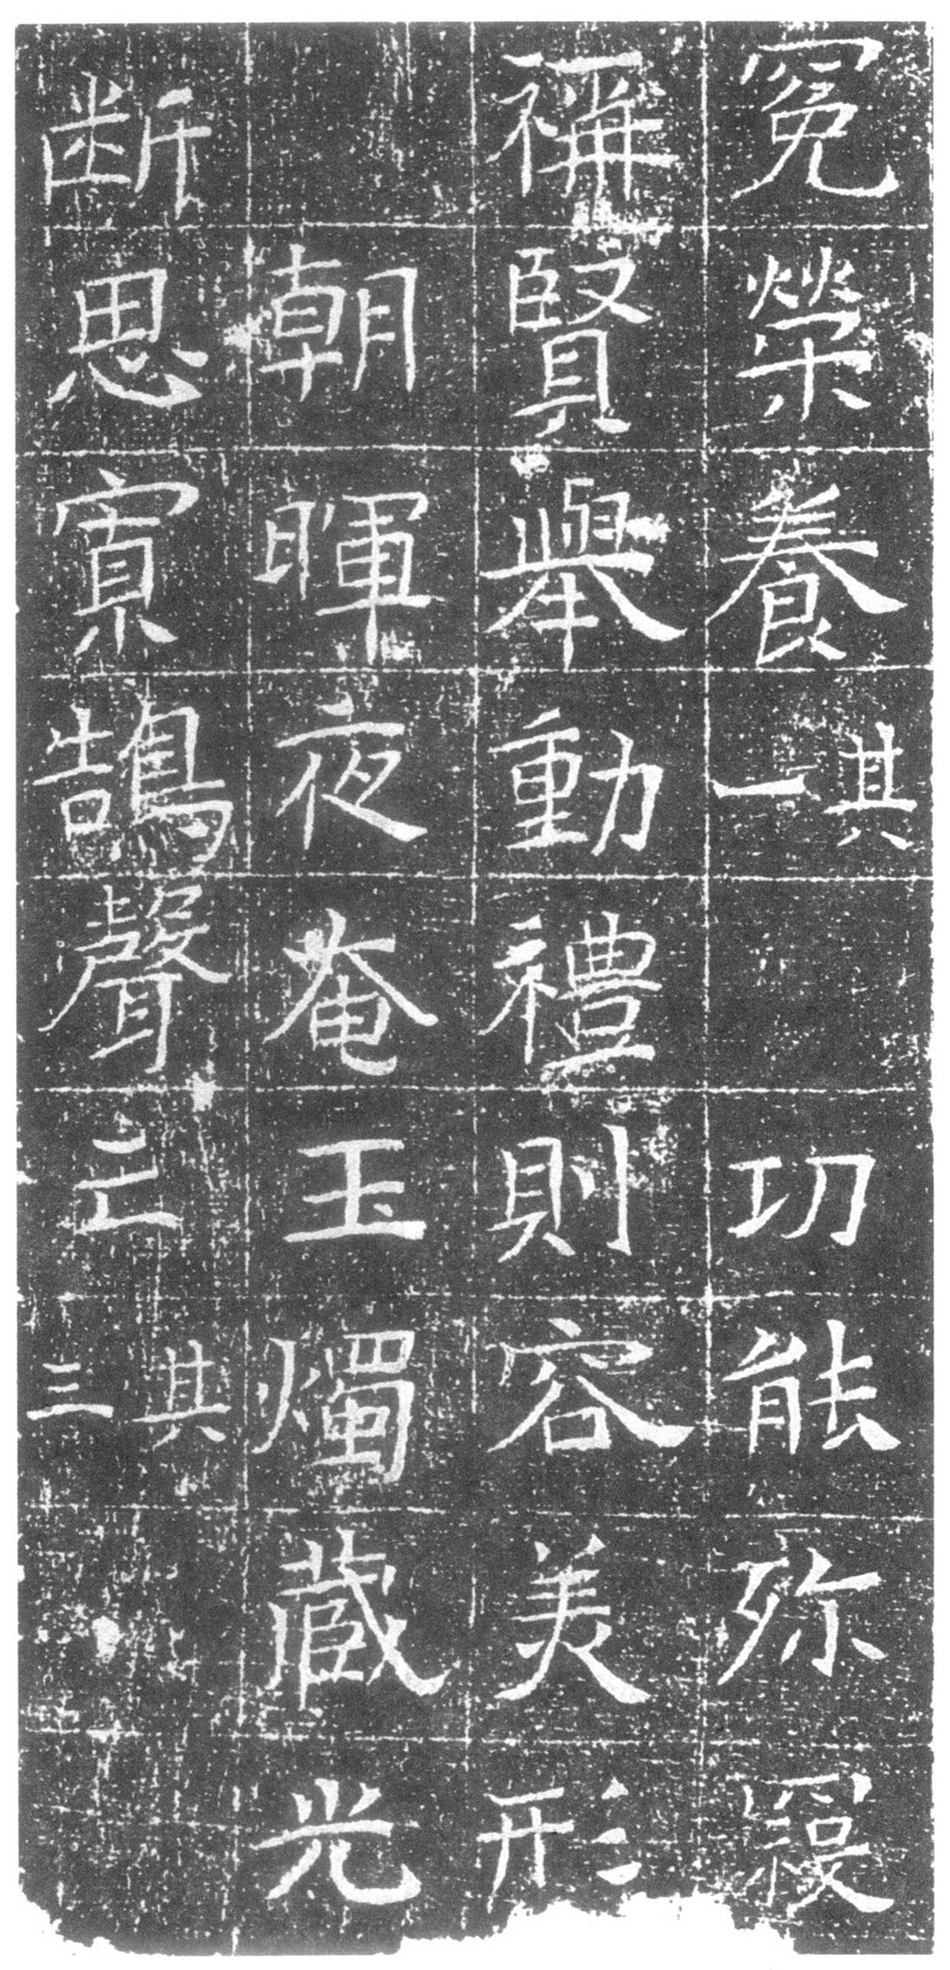 冕榮養其一 功能弥
稱賢舉動禮則容美形
朝暉夜奄玉燭藏光
断思賓鵠聲亡其三